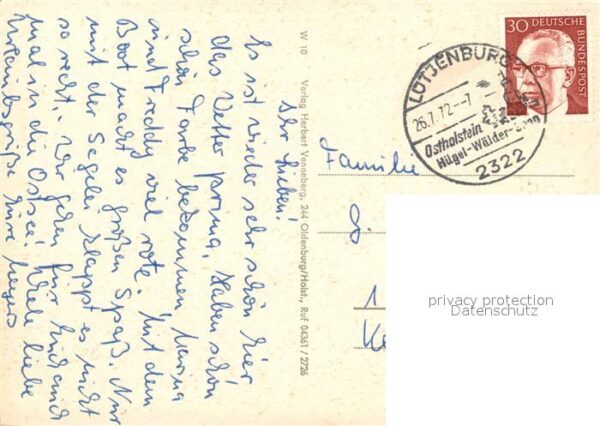 Ihr Lieben!
Es ist wieder sehr schön hier
das Wetter prima. Haben schon
schön Farbe bekommen,
und Freddy viel rote. Mit dem
Boot macht es großen Spaß. Nur
mit der Segelei klappt es nicht
so recht. Wir gehen für Euch auch
mal in die Ostsee! Viele liebe
Urlaubsgrüße Eure
W 10 Verlag Herbert Venneberg, 244 Oldenburg/Holst., Ruf 04361 / 2726
30 DEUTSCHE BUNDESPOST
LÜTJENBURG
26.7.72.--7
Ostholstein
Hügel-Wälder-
2322
Familie
1
privacy protection
Datenschutz